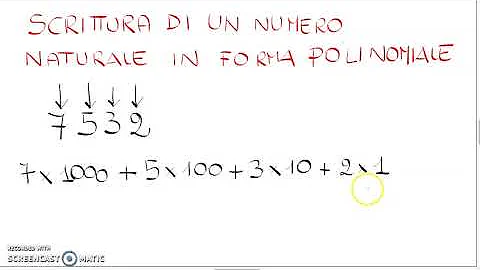 SCRITTURA DI UN NUMERO
NATURALE IN FORMA POLINOMIALE
7532
7×1000 + 5×100 + 3×10 + 2×1
RECORDED WITH
SCREENCAST MATIC